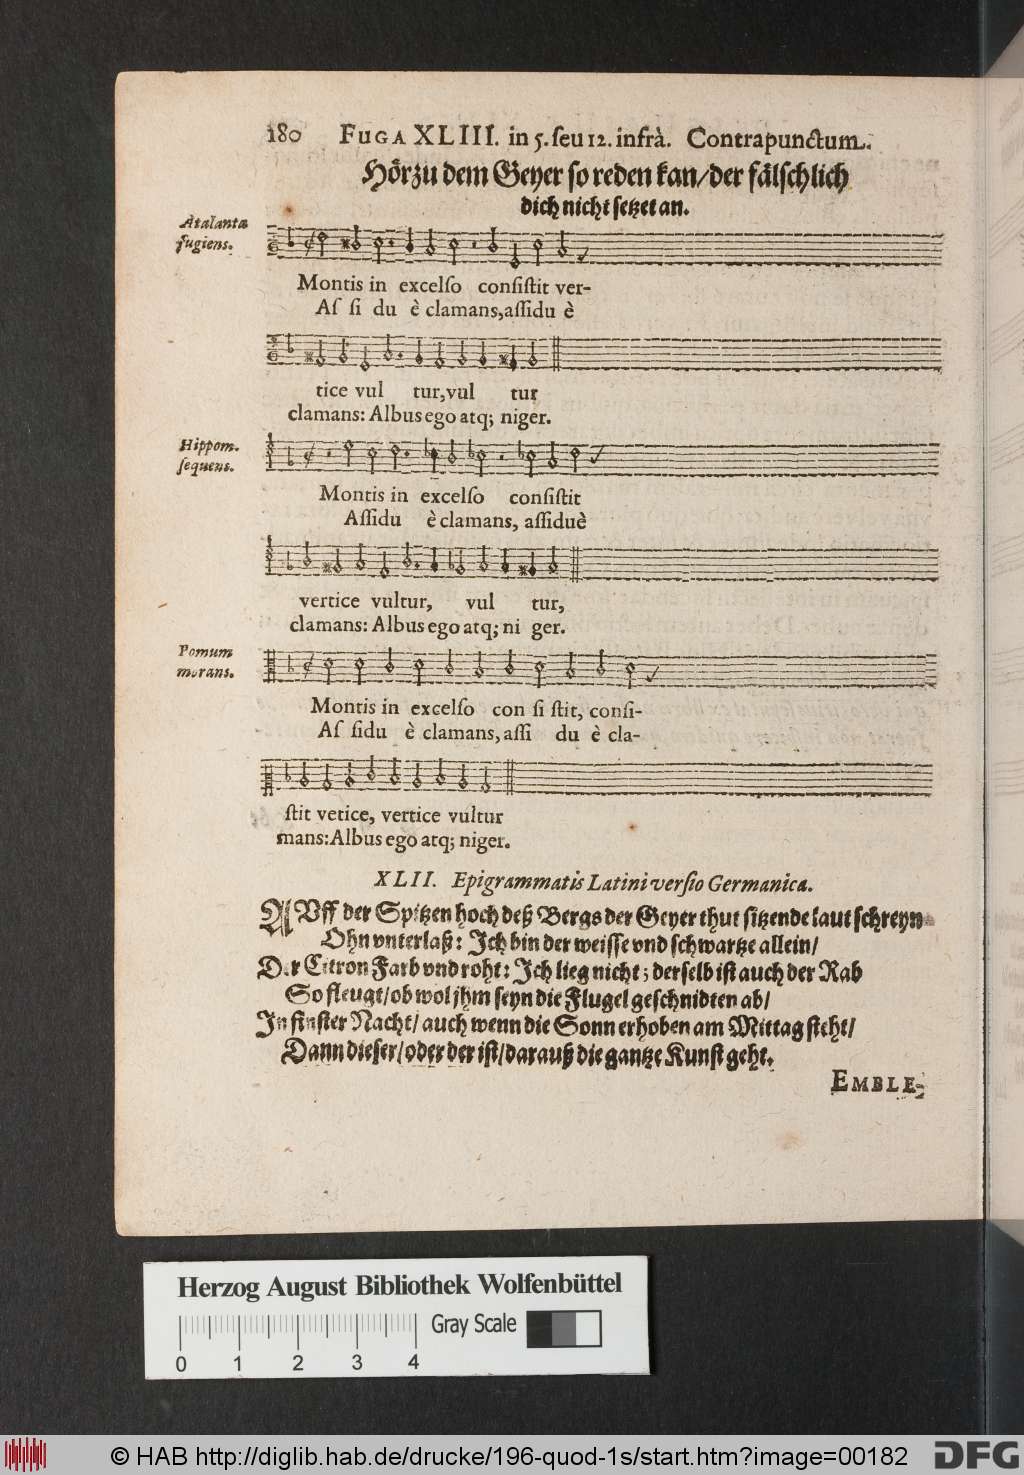 180 FUGA XLIII. in 5. seu 12. infrà. Contrapunctum.
Hörzu dem Geyer so reden kan/der fälschlich
dich nicht setzet an.
Atalanta
fugiens.
Montis in excelso consistit ver-
As si du è clamans,assidu è
tice vul tur,vul tur
clamans: Albus ego atq; niger.
Hippom.
sequens.
Montis in excelso consistit
Assidu è clamans, assiduè
vertice vultur, vul tur,
clamans: Albus ego atq; ni ger.
Pomum
morans.
Montis in excelso con si stit, consi-
As sidu è clamans, assi du è cla-
stit vetice, vertice vultur
mans:Albus ego atq; niger.
XLII. Epigrammatis Latini versio Germanica.
AUff der Spitzen hoch deß Bergs der Geyer thut sitzende laut schreyn
Ohn vnterlaß: Ich bin der weisse vnd schwartze allein/
Der Citron Farb vnd roht: Ich lieg nicht; derselb ist auch der Rab
So fleugt/ob wol jhm seyn die Flugel geschnidten ab/
In finster Nacht/auch wenn die Sonn erhoben am Mittag steht/
Dann dieser/oder der ist/darauß die gantze Kunst geht.
EMBLE-
Herzog August Bibliothek Wolfenbüttel
Gray Scale
0 1 2 3 4
© HAB http://diglib.hab.de/drucke/196-quod-1s/start.htm?image=00182
DFG